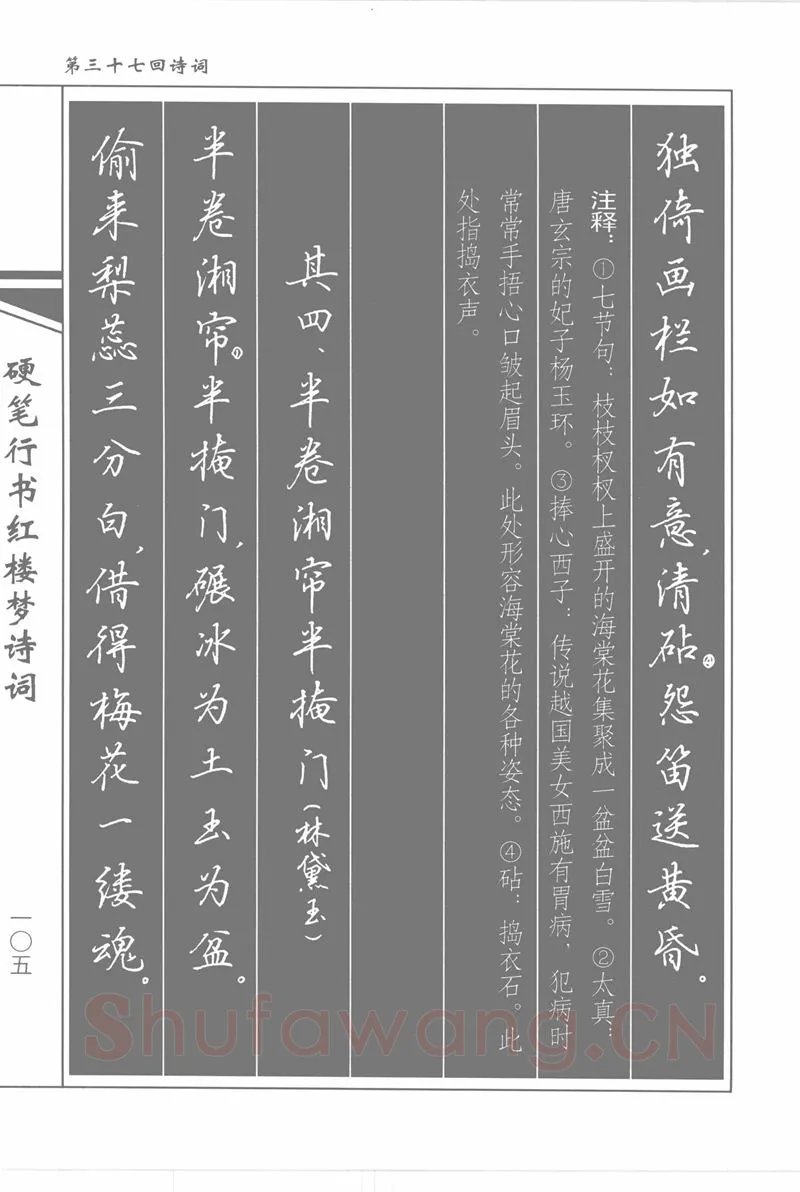 第三十七回诗词
独倚画栏如有意，清砧④怨笛送黄昏。
注释：①七节句：枝枝杈杈上盛开的海棠花集聚成一盆盆白雪。②太真：
唐玄宗的妃子杨玉环。③捧心西子：传说越国美女西施有胃病，犯病时
常常手捂心口皱起眉头。此处形容海棠花的各种姿态。④砧：捣衣石。此
处指捣衣声。
其四、半卷湘帘半掩门（林黛玉）
半卷湘帘①半掩门，碾冰为土玉为盆。
偷来梨蕊三分白，借得梅花一缕魂。
硬笔行书红楼梦诗词
一〇五
Shufawang.CN